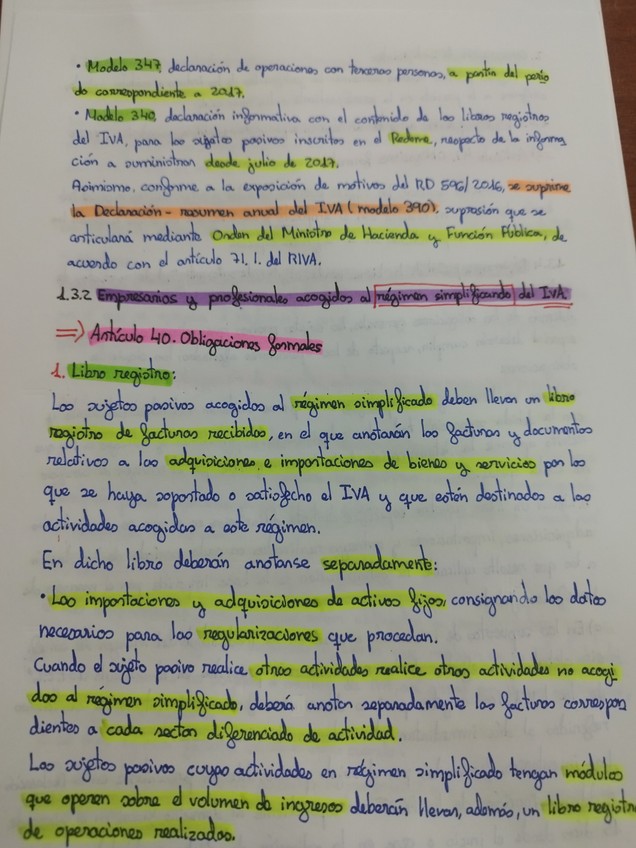 • Modelo 347, declaración de operaciones con terceras personas, a partir del perio
do correspondiente a 2017.
• Modelo 340, declaración informativa con el contenido de los libros registros
del IVA, para los sujetos pasivos inscritos en el Redeme, respecto de la informa
ción a suministrar desde julio de 2017.
Asimismo, conforme a la exposición de motivos del RD 596/2016, se suprime
la Declaración-resumen anual del IVA (modelo 390), supresión que se
articulará mediante Orden del Ministro de Hacienda y Función Pública, de
acuerdo con el artículo 71.1. del RIVA.
1.3.2 Empresarios y profesionales acogidos al régimen simplificado del IVA
=> Artículo 40. Obligaciones formales
1. Libro registro:
Los sujetos pasivos acogidos al régimen simplificado deben llevar un libro
registro de facturas recibidas, en el que anotarán las facturas y documentos
relativos a las adquisiciones e importaciones de bienes y servicios por los
que se haya soportado o satisfecho el IVA y que estén destinados a las
actividades acogidas a este régimen.
En dicho libro deberán anotarse separadamente:
• Las importaciones y adquisiciones de activos fijos, consignando los datos
necesarios para las regularizaciones que procedan.
Cuando el sujeto pasivo realice otras actividades realice otras actividades no acogi
das al régimen simplificado, deberá anotar separadamente las facturas correspon
dientes a cada sector diferenciado de actividad.
Los sujetos pasivos cuyas actividades en régimen simplificado tengan módulos
que operen sobre el volumen de ingresos deberán llevar, además, un libro registro
de operaciones realizadas.